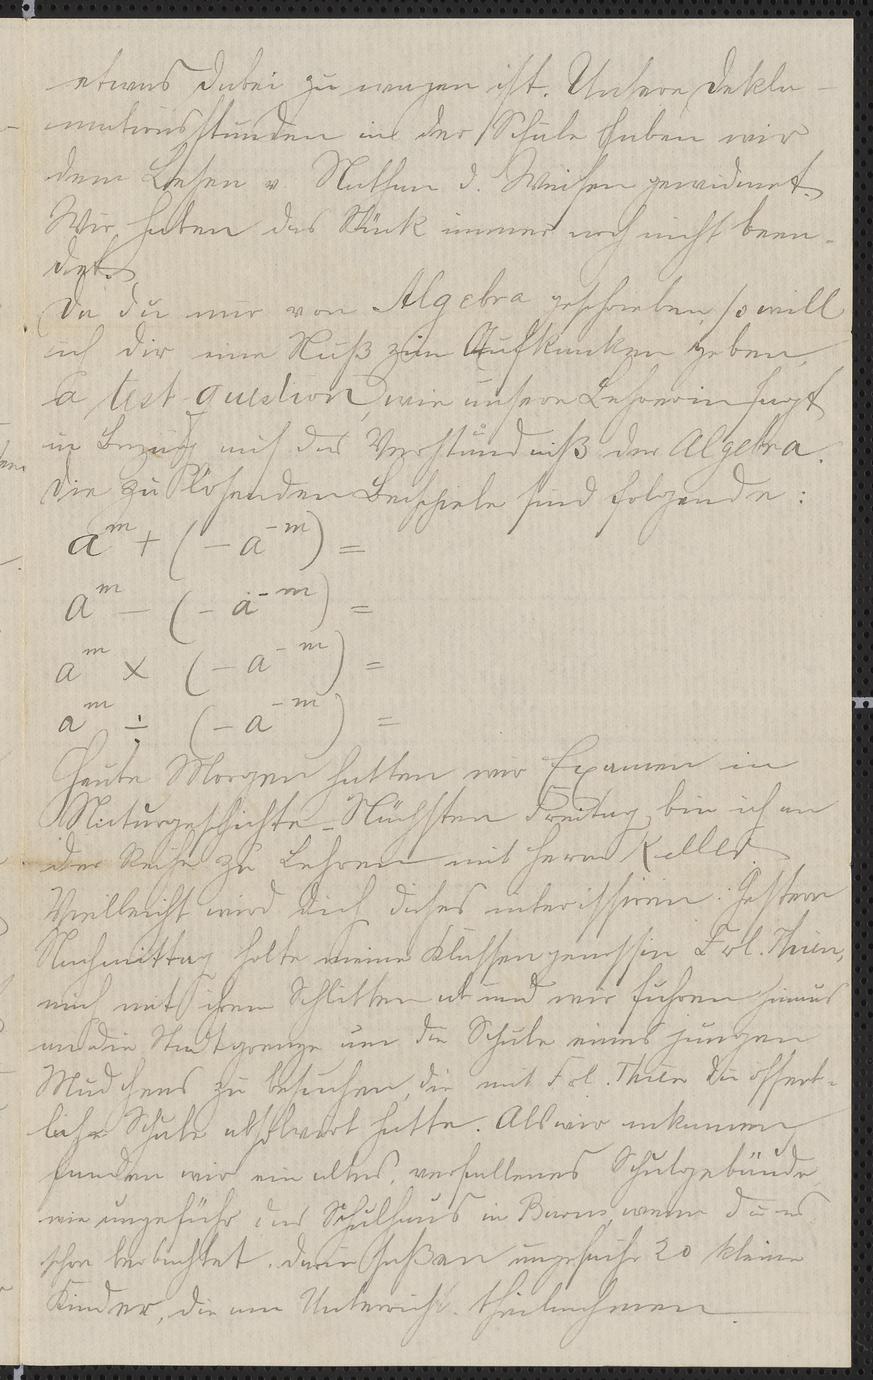 etwas dabei zu wagen ist. Unsere Dekla-
mationsstunden in der Schule haben wir
dem Lesen v. Nathan d. Weisen gewidmet.
Wir haben das Stück immer noch nicht been-
det.
Da du mir von Algebra geschrieben, so will
ich dir eine Nuß zum Aufknacken geben,
a test question, wie unsere Lehrerin sagt
in Bezug auf das Verständniß der Algebra.
Die zu lösenden Beispiele sind folgende:
a^m + (-a^-m) =
a^m - (-a^-m) =
a^m × (-a^-m) =
a^m ÷ (-a^-m) =
Heute Morgen hatten wir Examen in
Naturgeschichte - Nächsten Freitag bin ich an
der Reihe zu Lehren mit Herrn Keller.
Vielleicht wird dich dieses interissiren. Gestern
Nachmittag holte meine Klassengenossin Frl. Thien,
mich mit ihrem Schlitten ab und wir fuhren hinaus
an die Stadtgrenze um die Schule eines jungen
Mädchens zu besuchen, die mit Frl. Thien die öffent-
liche Schule absolvirt hatte. Als wir ankamen
fanden wir ein altes, verfallenes Schulgebäude,
wie ungefähr das Schulhaus in wenn du es
schon beobachtet. Darin saßen ungefähr 20 kleine
Kinder, die am Unterricht theilnahmen.